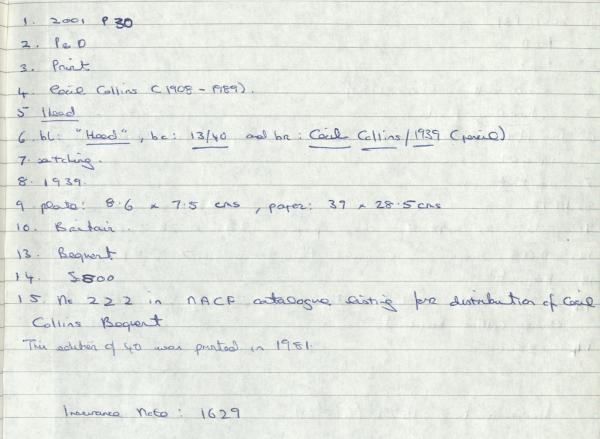 1. 2001 P 30
2. P&D
3. Print
4. Cecil Collins (1908 - 1989).
5 Head
6. bl: "Head", bc: 13/40 and br: Cecil Collins/1939 (pencil)
7. etching.
8. 1939.
9 plate: 8.6 x 7.5 cms, paper: 37 x 28.5cms
10. Britain.
13. Bequest
14. £800
15. No 222 in NACF catalogue listing for distribution of Cecil
Collins Bequest
This edition of 40 was printed in 1981.
Insurance Note: 1629